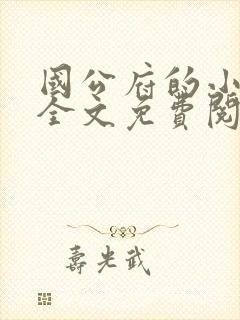 國公府的小
全文免費閱
壽光武